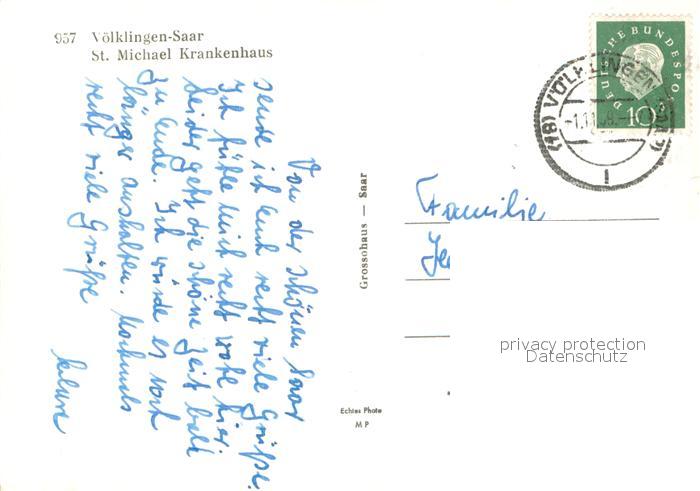 957 Völklingen-Saar
St. Michael Krankenhaus
Von der schönen Saar
sende ich Euch recht viele Grüße.
Ich fühle mich recht wohl hier
leider geht die schöne Zeit bald
zu Ende. Ich würde es noch
länger aushalten. Nochmals
recht viele Grüße
Grossohaus — Saar
Echtes Photo
M P
DEUTSCHE BUNDESPOST
10
(18) VÖLKLINGEN (SAAR)
1
Familie
Je
privacy protection
Datenschutz